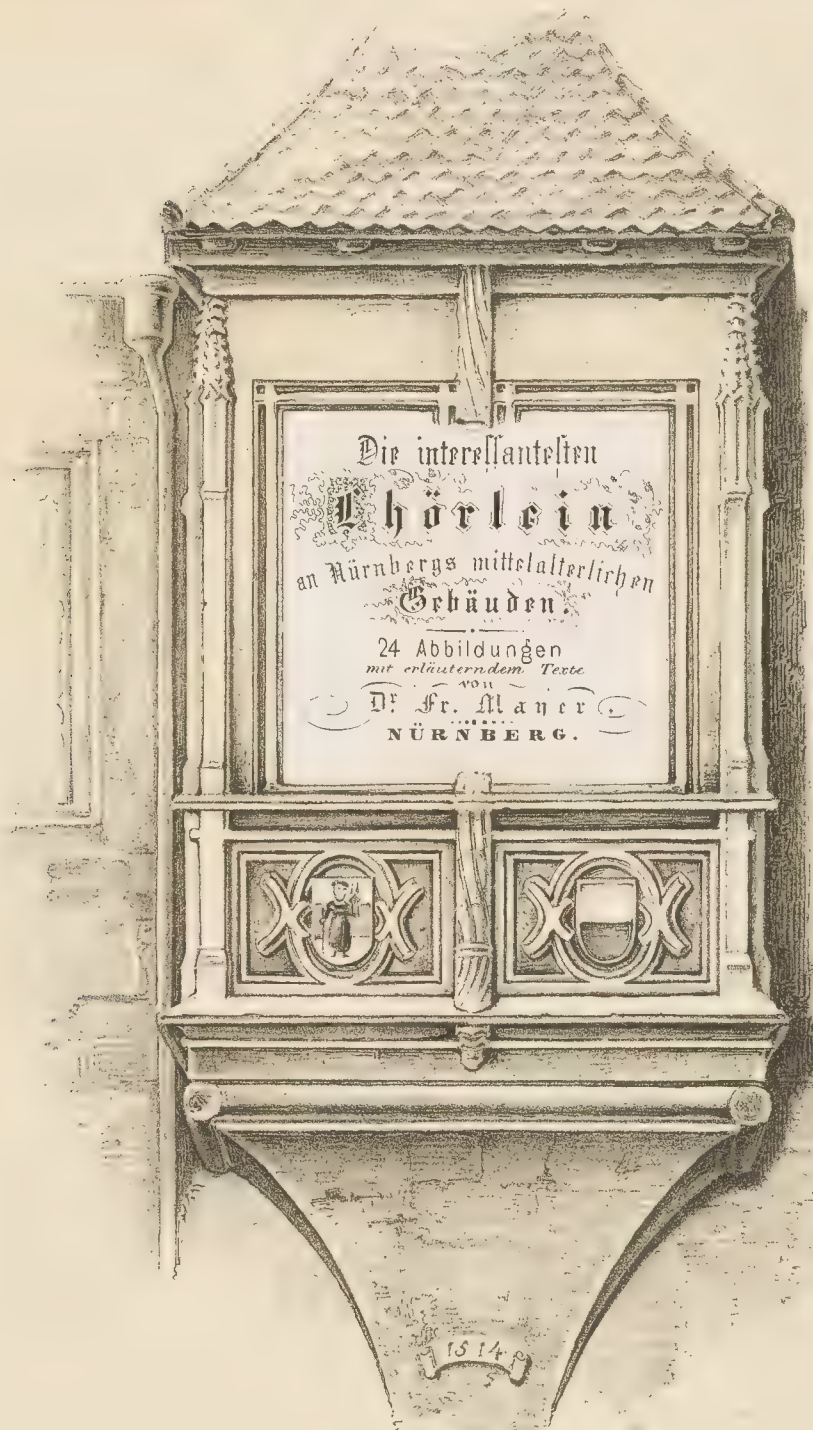 Die interessantesten
Chörlein
an Nürnbergs mittelalterlichen
Gebäuden.
24 Abbildungen
mit erläuterndem Texte
von
Dr. Fr. Mayer.
NÜRNBERG.
1514